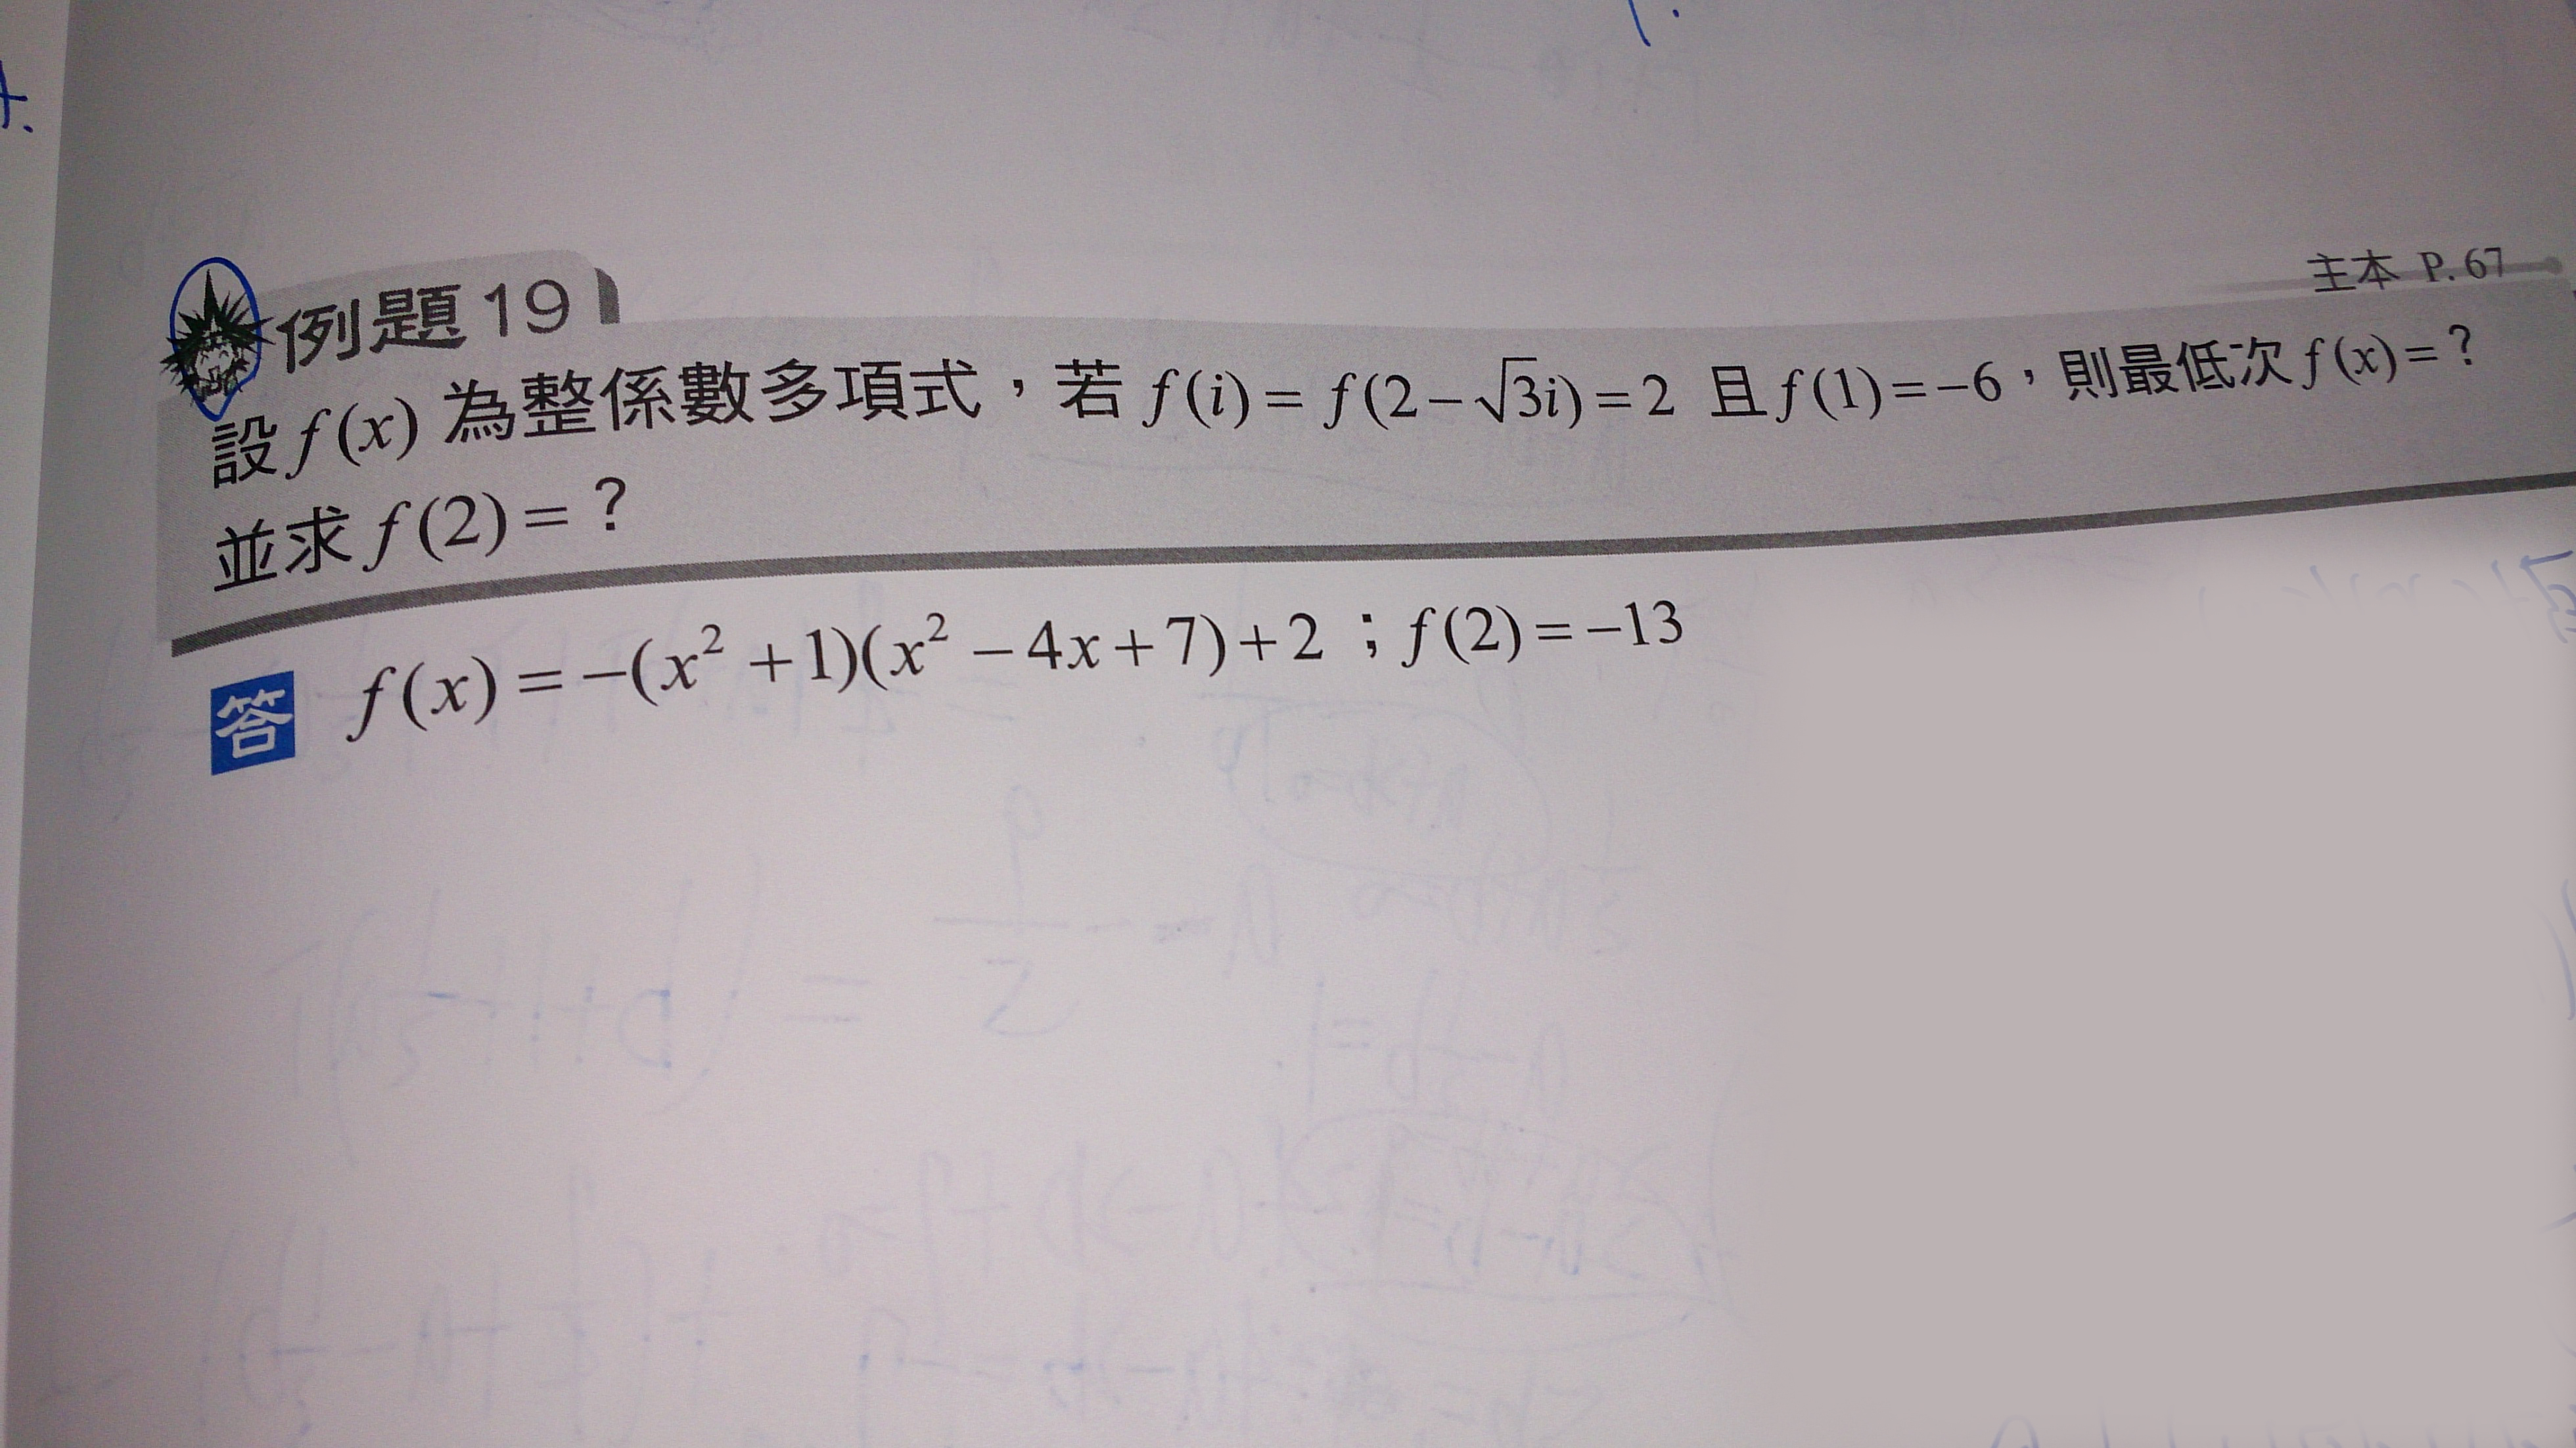 主本 P. 67
例題19
設 f(x) 為整係數多項式，若 f(i) = f(2−√3i) = 2 且 f(1) = −6，則最低次 f(x) = ?
並求 f(2) = ?
答 f(x) = −(x² + 1)(x² − 4x + 7) + 2 ; f(2) = −13